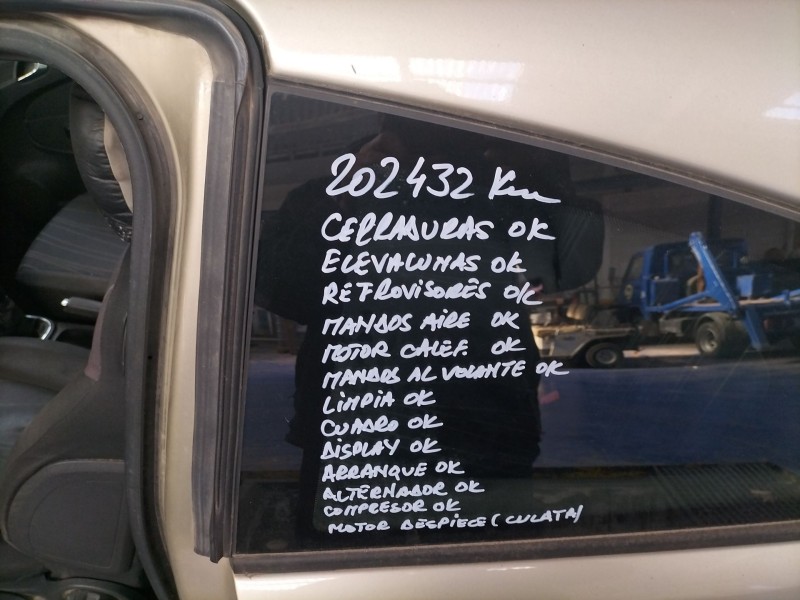 202432 Km
CERRADURAS OK
ELEVALUNAS OK
RETROVISORES OK
MANDOS AIRE OK
MOTOR CALEF. OK
MANDOS AL VOLANTE OK
LIMPIA OK
CUADRO OK
DISPLAY OK
ARRANQUE OK
ALTERNADOR OK
COMPRESOR OK
MOTOR DESPIECE (CULATA)